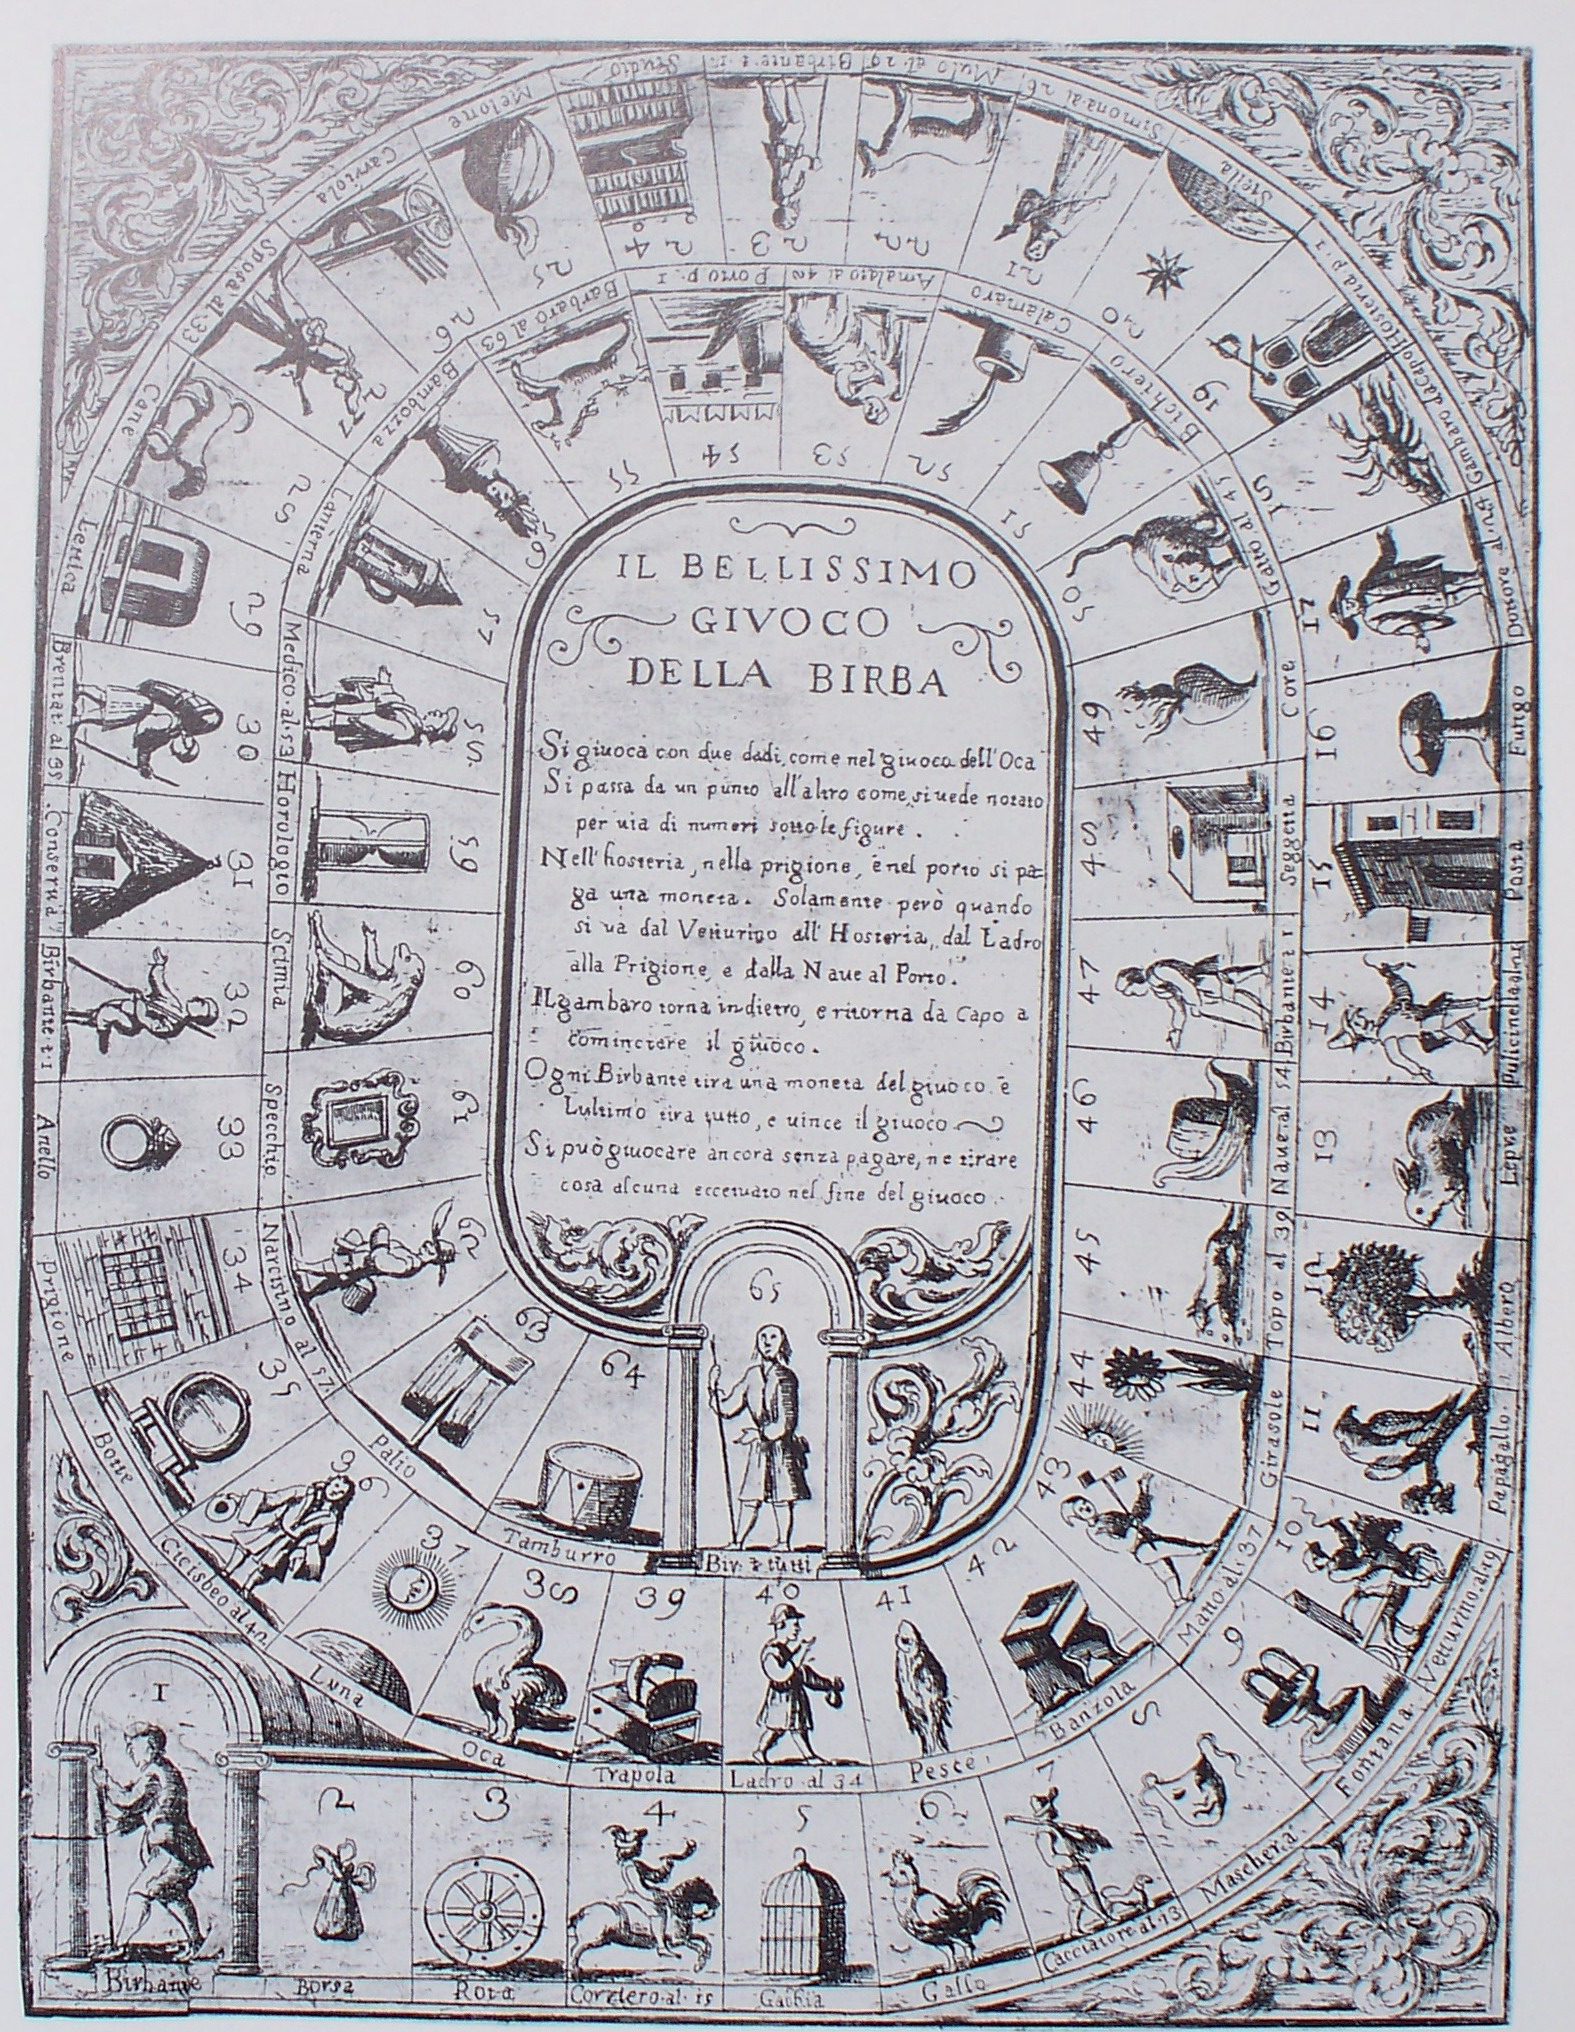 IL BELLISSIMO
GIVOCO
DELLA BIRBA
Si giuoca con due dadi, come nel giuoco dell'Oca
Si passa da un punto all'altro come si uede notato
per uia di numeri sotto le figure.
Nell'hosteria, nella prigione, e nel porto si pa-
ga una moneta. Solamente però quando
si ua dal Vetturino all'Hosteria, dal Ladro
alla Prigione, e dalla Naue al Porto.
Il gambaro torna indietro, e ritorna da Capo a
cominciare il giuoco.
Ogni Birbante tira una moneta del giuoco e
Lultimo tira tutto, e uince il giuoco
Si può giuocare ancora senza pagare, ne tirare
cosa alcuna eccetuato nel fine del giuoco.
1 Birbante
2 Borsa
3 Rota
4 Corriero al 15
5 Gabbia
6 Gallo
7 Cacciatore al 13
8 Maschera
9 Fontana
10 Vetturino al 19
11 Papagallo
12 Albero
13 Lepre
14 Pulicinella
15 Posta
16 Fungo
17 Dottore al 24
18 Gambaro da Capo
19 Hosteria p. 1
20 Stella
21 Simona al 26
22 Mulo al 29
23 Birbante t. 1
24 Studio
25 Melone
26 Carriola
27 Sposa al 33
28 Cane
29 Letica
30 Brentat: al 35
31 Conserva
32 Birbante t. 1
33 Anello
34 Prigione
35 Botte
36 Cicisbeo al 42
37 Luna
38 Oca
39 Trapola
40 Ladro al 34
41 Pesce
42 Banzola
43 Matto al 37
44 Girasole
45 Topo al 39
46 Naue al 54
47 Birbante t 1
48 Seggetta
49 Core
50 Gatto al 45
51 Bichiero
52 Calamaro
53 Amalato al 42
54 Porto p. 1
55 Barbaro al 63
56 Bambozza
57 Lanterna
58 Medico al 53
59 Horologio
60 Scimia
61 Specchio
62 Narcisino al 57
63 Palio
64 Tamburro
65 Bir t tutti